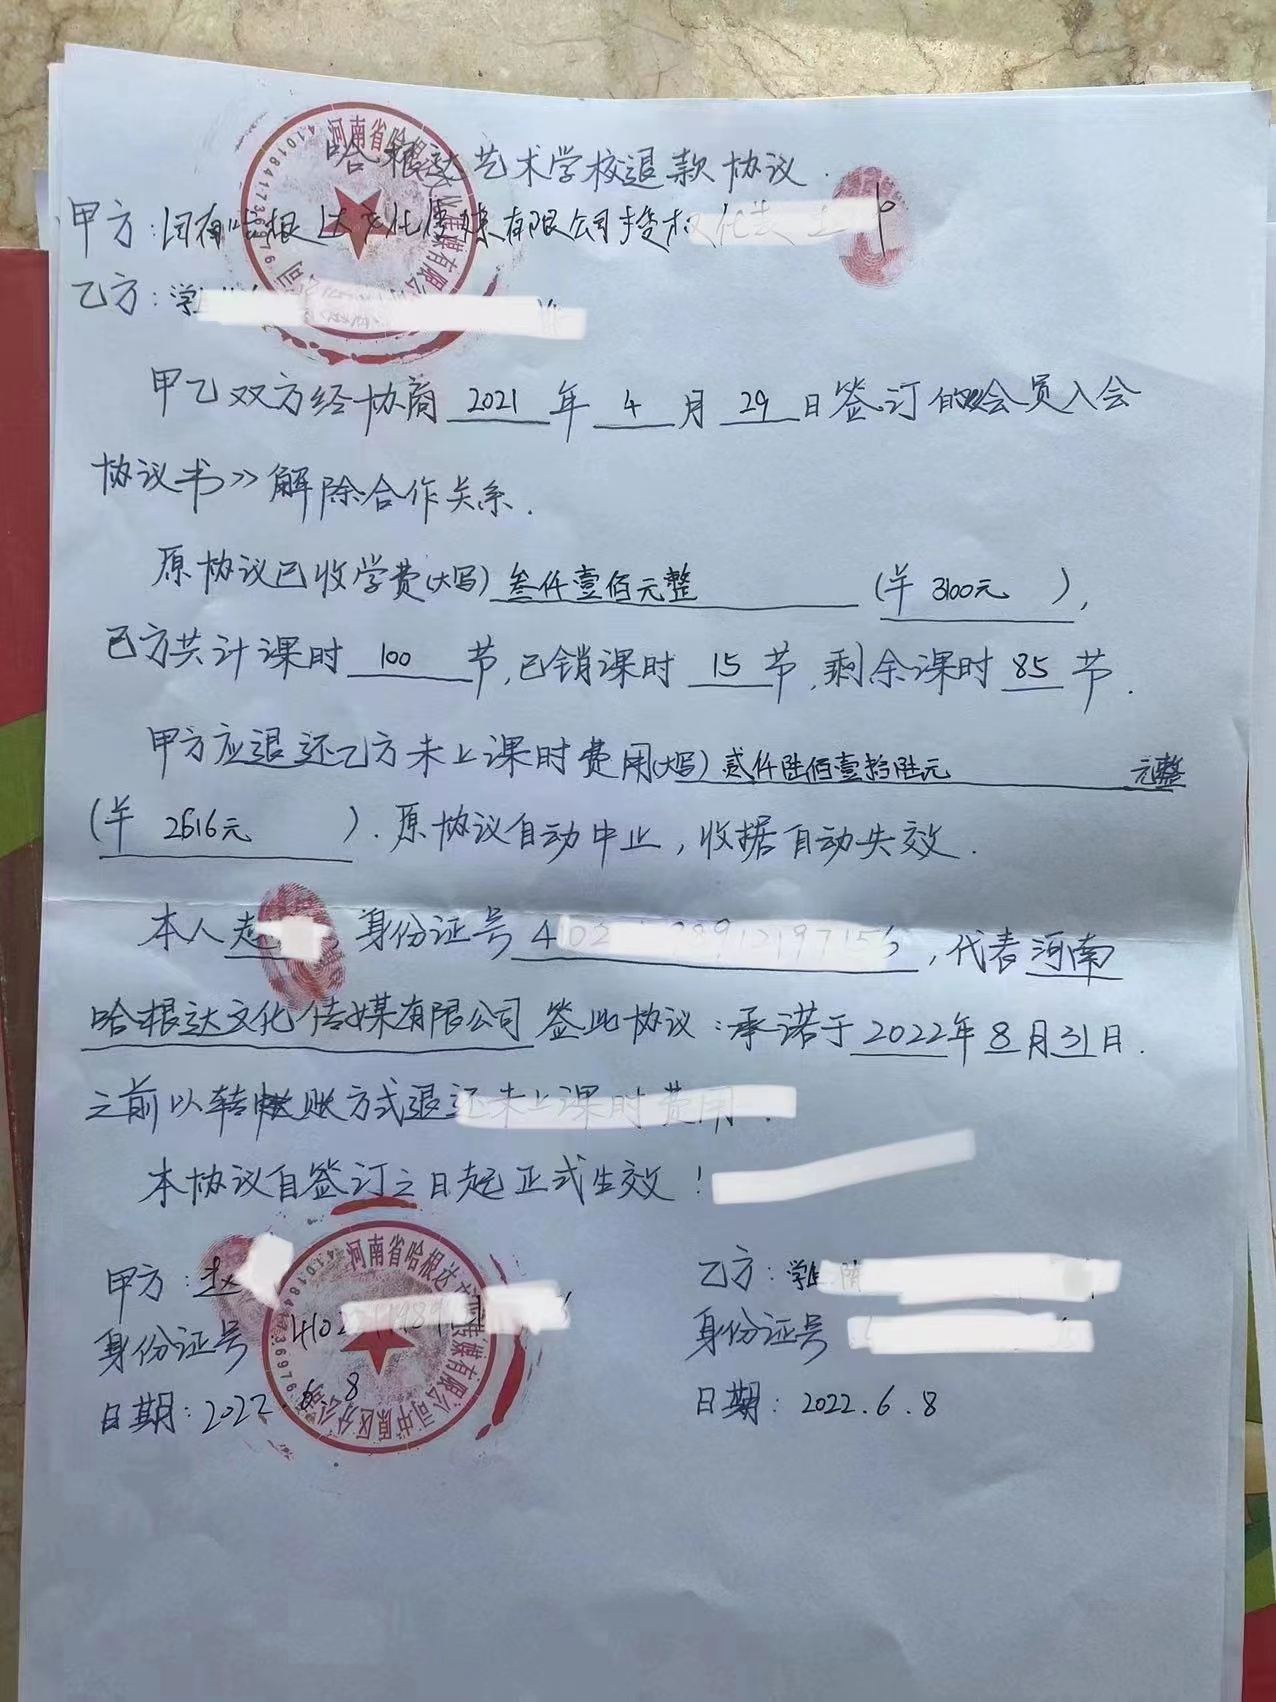 哈根达艺术学校退款协议.
甲方:河南哈根达文化传媒有限公司授权代表
乙方:学
甲乙双方经协商 2021 年 4 月 29 日签订的《会员入会
协议书》解除合作关系.
原协议已收学费(大写)叁仟壹佰元整 (羊 3100元 ),
乙方共计课时 100 节,已销课时 15 节,剩余课时 85 节.
甲方应退还乙方未上课时费用(大写)贰仟陆佰壹拾陆元 元整
(羊 2616元 ).原协议自动中止,收据自动失效.
本人赵 身份证号4 ,代表河南
哈根达文化传媒有限公司签此协议:承诺于2022年8月31日.
之前以转账方式退还未上课时费用.
本协议自签订之日起正式生效!
甲方:赵
乙方:学
身份证号
身份证号
日期:2022.6.8
日期: 2022.6.8
河南省哈根达文化传媒有限公司中原区分公司